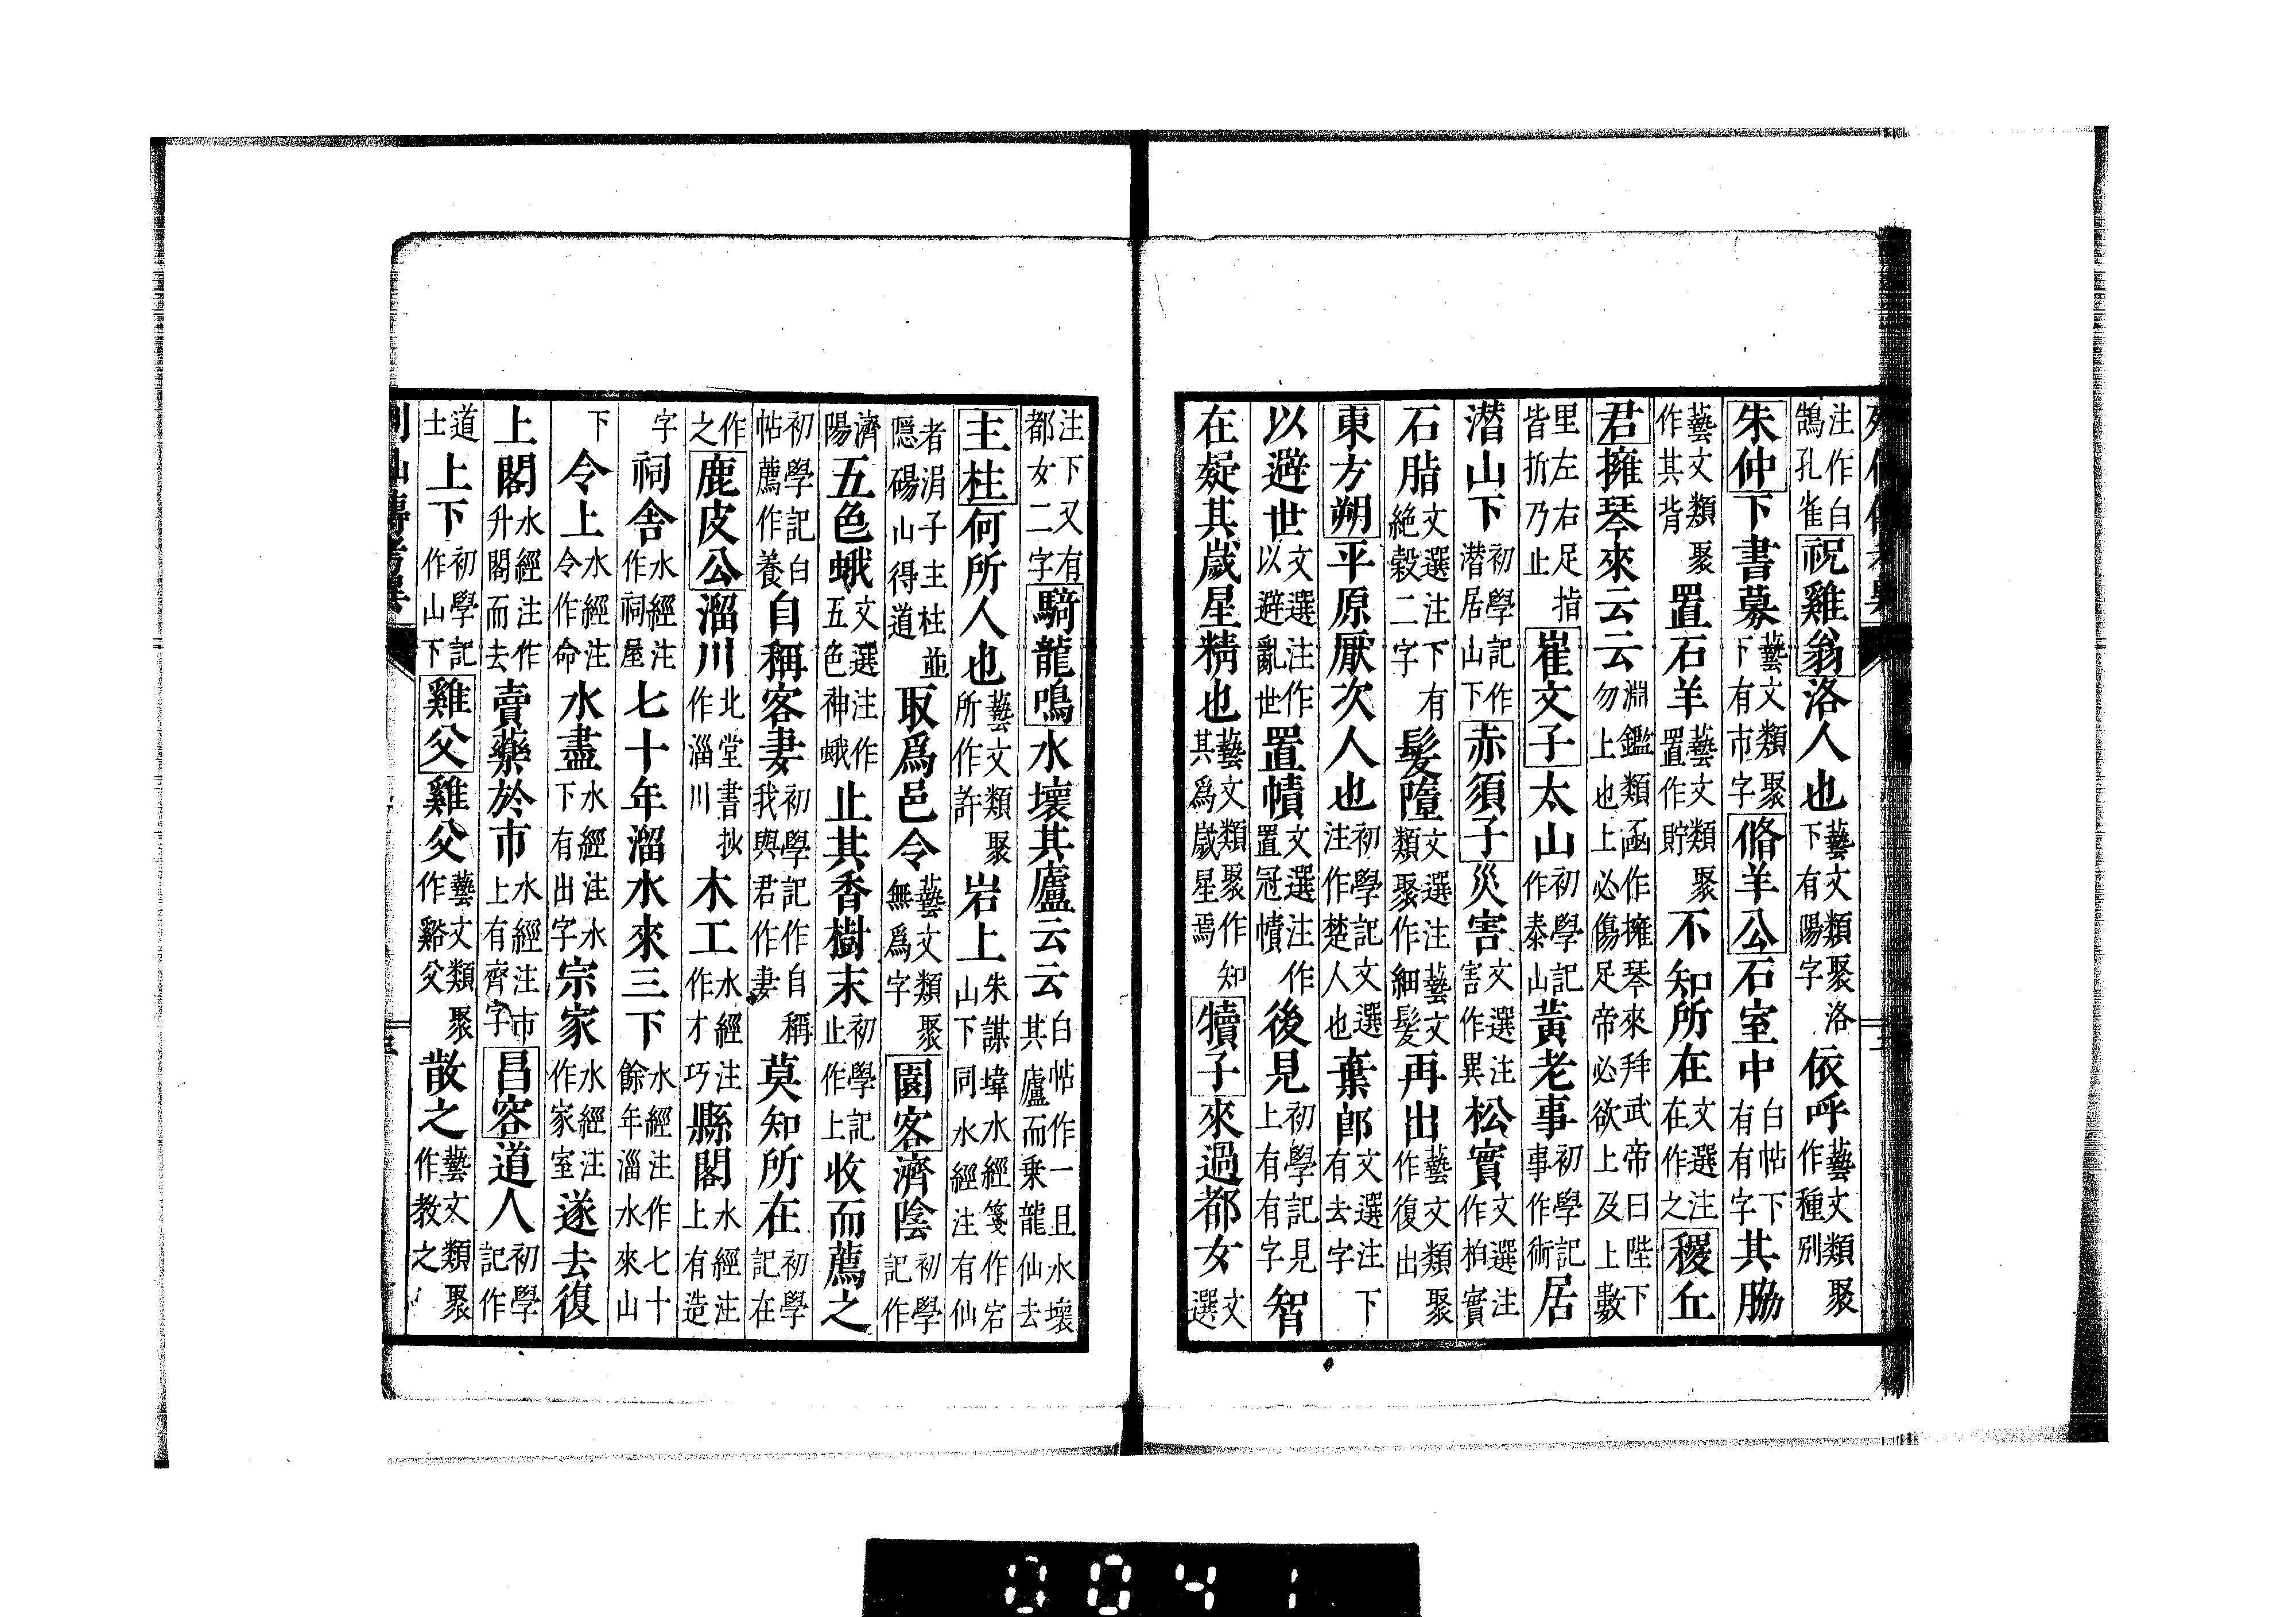 注作白鵠孔雀祝雞翁洛人也藝文類聚洛下有陽字依呼藝文類聚作種別
朱仲下書募藝文類聚下有市字脩羊公石室中白帖下有有字其脇
藝文類聚作其背置石羊藝文類聚置作貯不知所在文選注在作之稷丘
君擁琴來云云淵鑑類函作擁琴來拜武帝曰陛下勿上也上必傷足帝必欲上及上數
里左右足指皆折乃止崔文子太山初學記作泰山黃老事初學記事作術居
潜山下初學記作潜居山下赤須子災害文選注害作異松實文選注作柏實
石脂文選注下有絶穀二字髮墮文選注藝文類聚作細髮再出藝文類聚作復出
東方朔平原厭次人也初學記文選注作楚人也棄郎文選注下有去字
以避世文選注作以避亂世置幘文選注作置冠幘後見初學記見上有有字智
在疑其歲星精也藝文類聚作知其為歲星焉犢子來過都女文選
注下又有都女二字騎龍鳴水壞其廬云云白帖作一旦水壞其廬而乗龍仙去
主柱何所人也藝文類聚所作許岩上朱謀㙔水經箋作宕山下同水經注有仙
者涓子主柱並隠碭山得道取爲邑令藝文類聚無爲字園客濟陰初學記作
濟陽五色蛾文選注作五色神蛾止其香樹末初學記止作上收而薦之
初學記白帖薦作養自稱客妻初學記作自稱我與君作妻莫知所在初學記在
作之鹿皮公淄川北堂書抄作淄川木工水經注作才巧縣閣水經注上有造
字祠舍水經注作祠屋七十年淄水來三下水經注作七十餘年淄水來山
下令上水經注令作命水盡水經注水下有出字宗家水經注作家室遂去復
上閣水經注作升閣而去賣藥於市水經注市上有齊字昌容道人初學記作
道士上下初學記作山下雞父雞父藝文類聚作谿父散之藝文類聚作教之